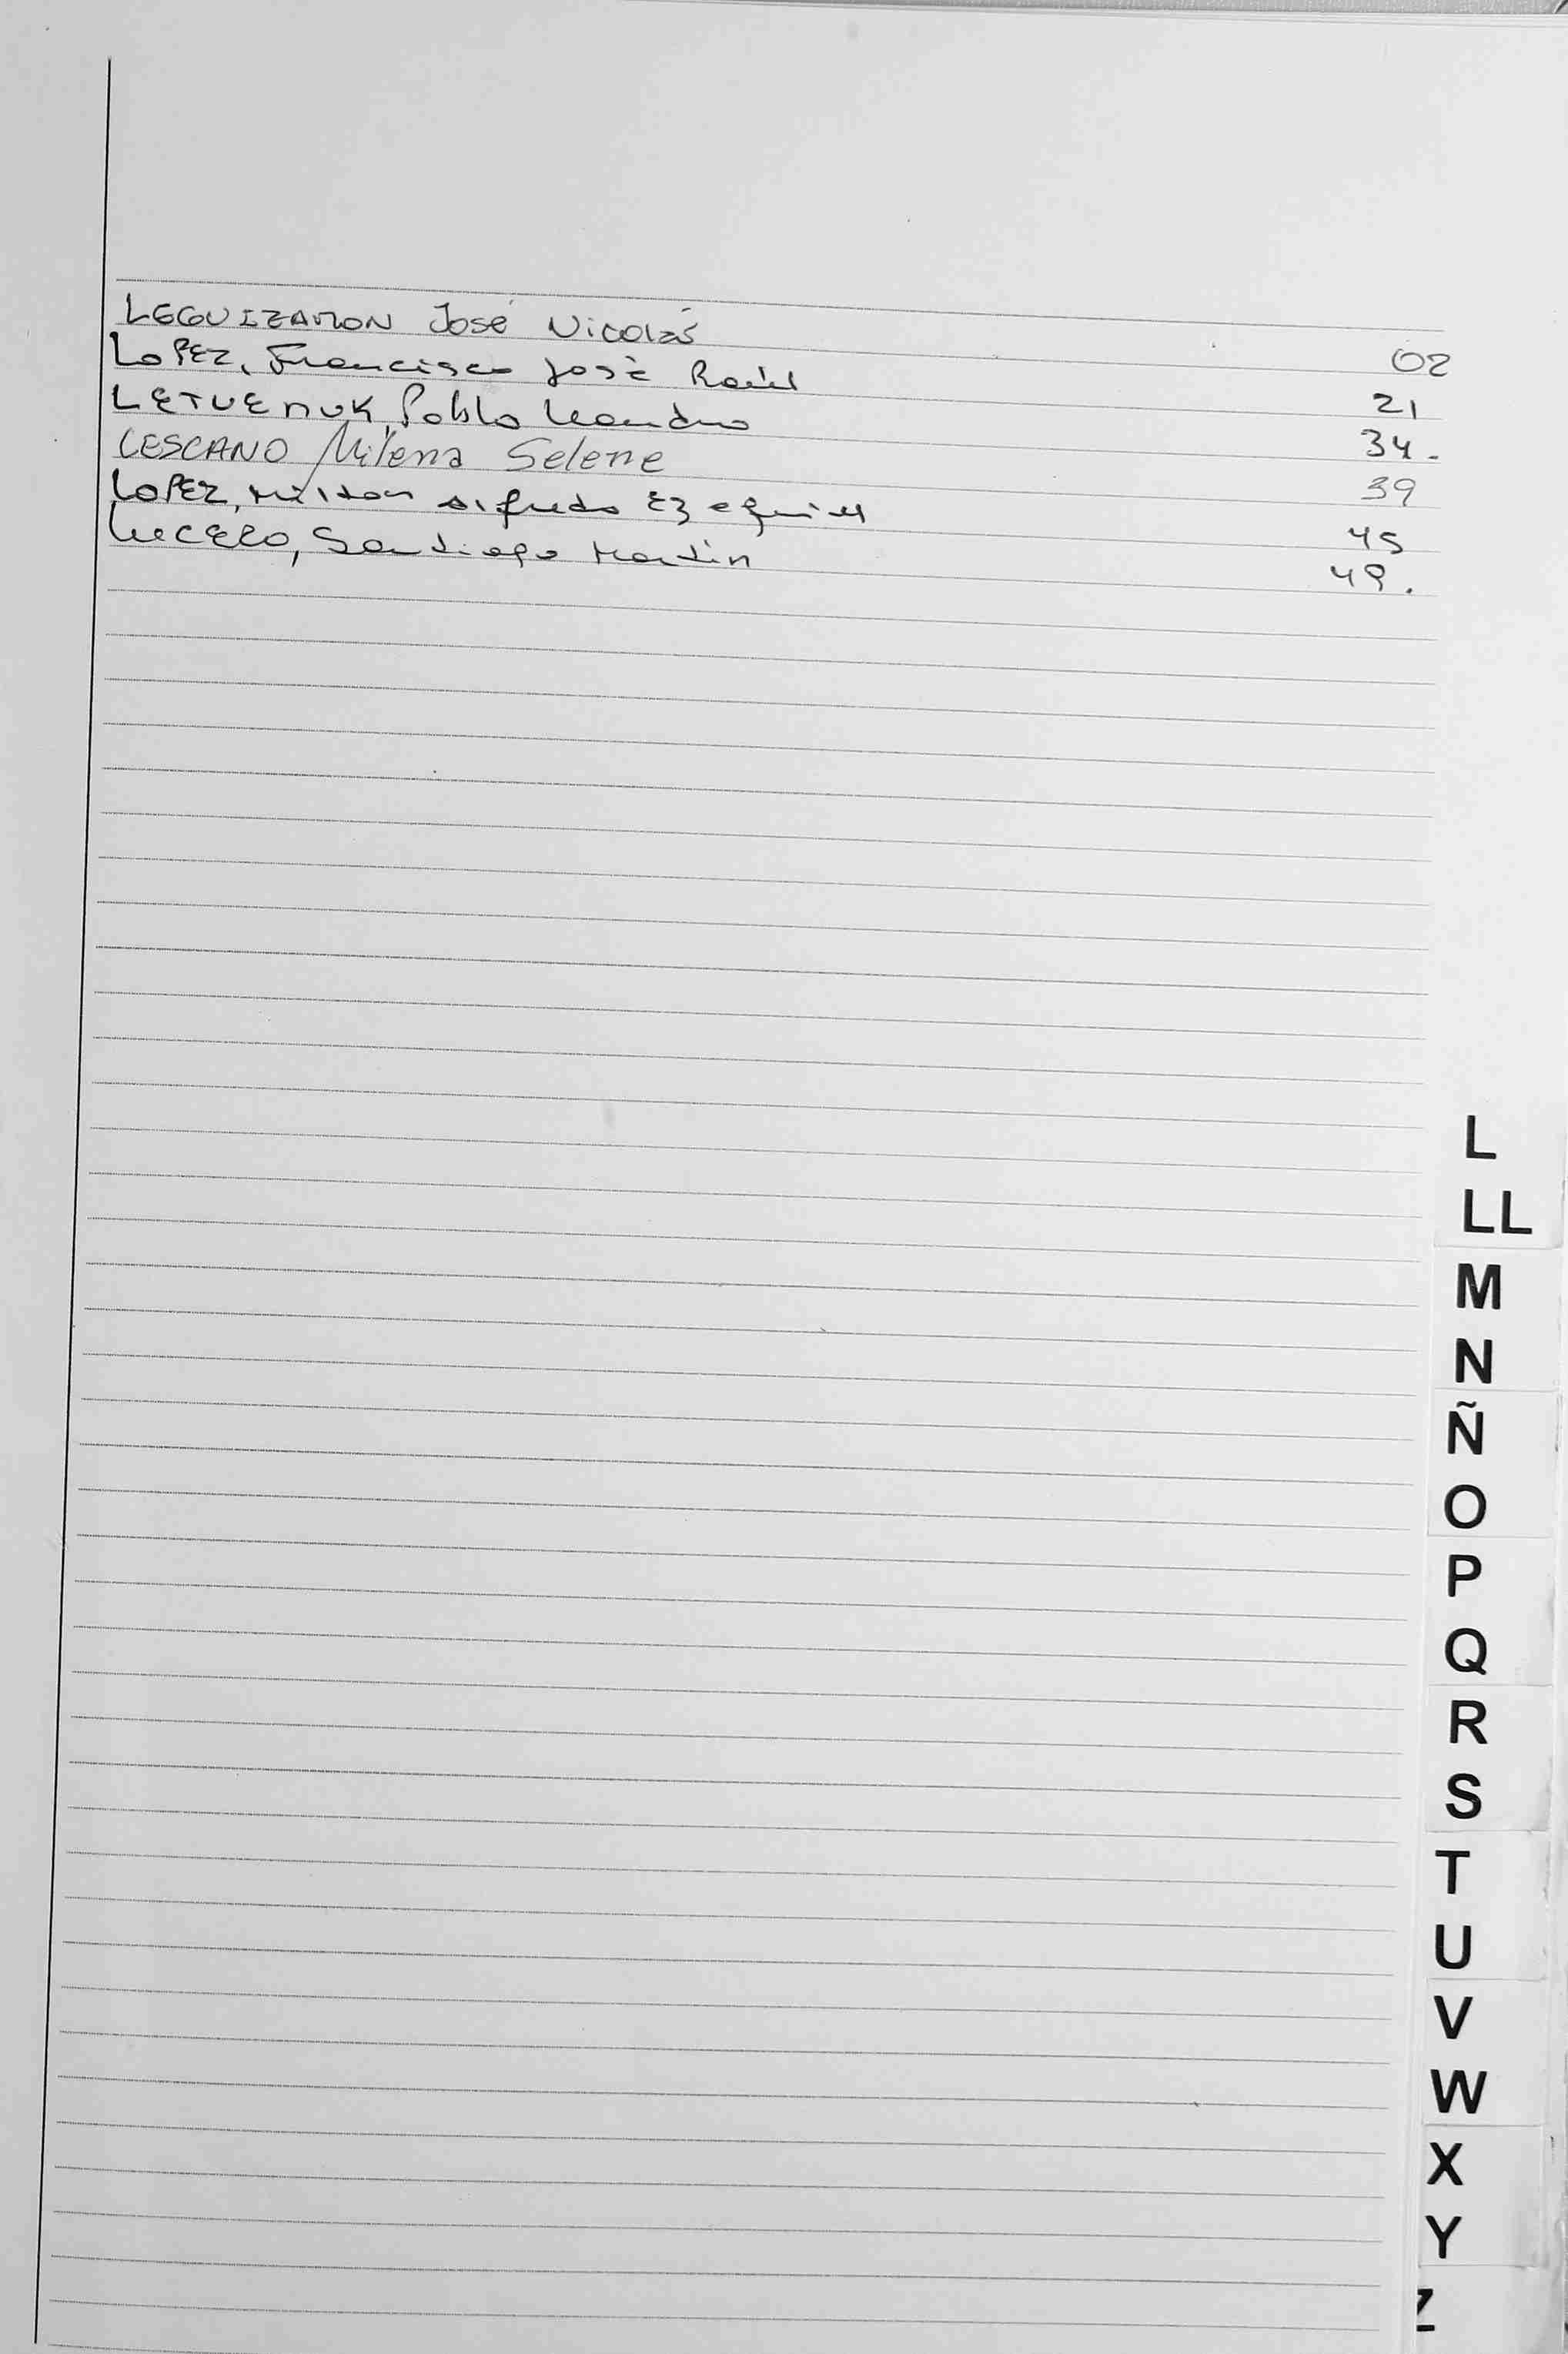 LEGUIZAMON José Nicolás 02
LOPEZ, Francisco José Raúl 21
LETVEMUK, Pablo Leandro 34.
LESCANO Milena Selene 39
LOPEZ, Milton Alfredo Ezequiel 45
LUCERO, Santiago Martín 49.
L
LL
M
N
Ñ
O
P
Q
R
S
T
U
V
W
X
Y
Z